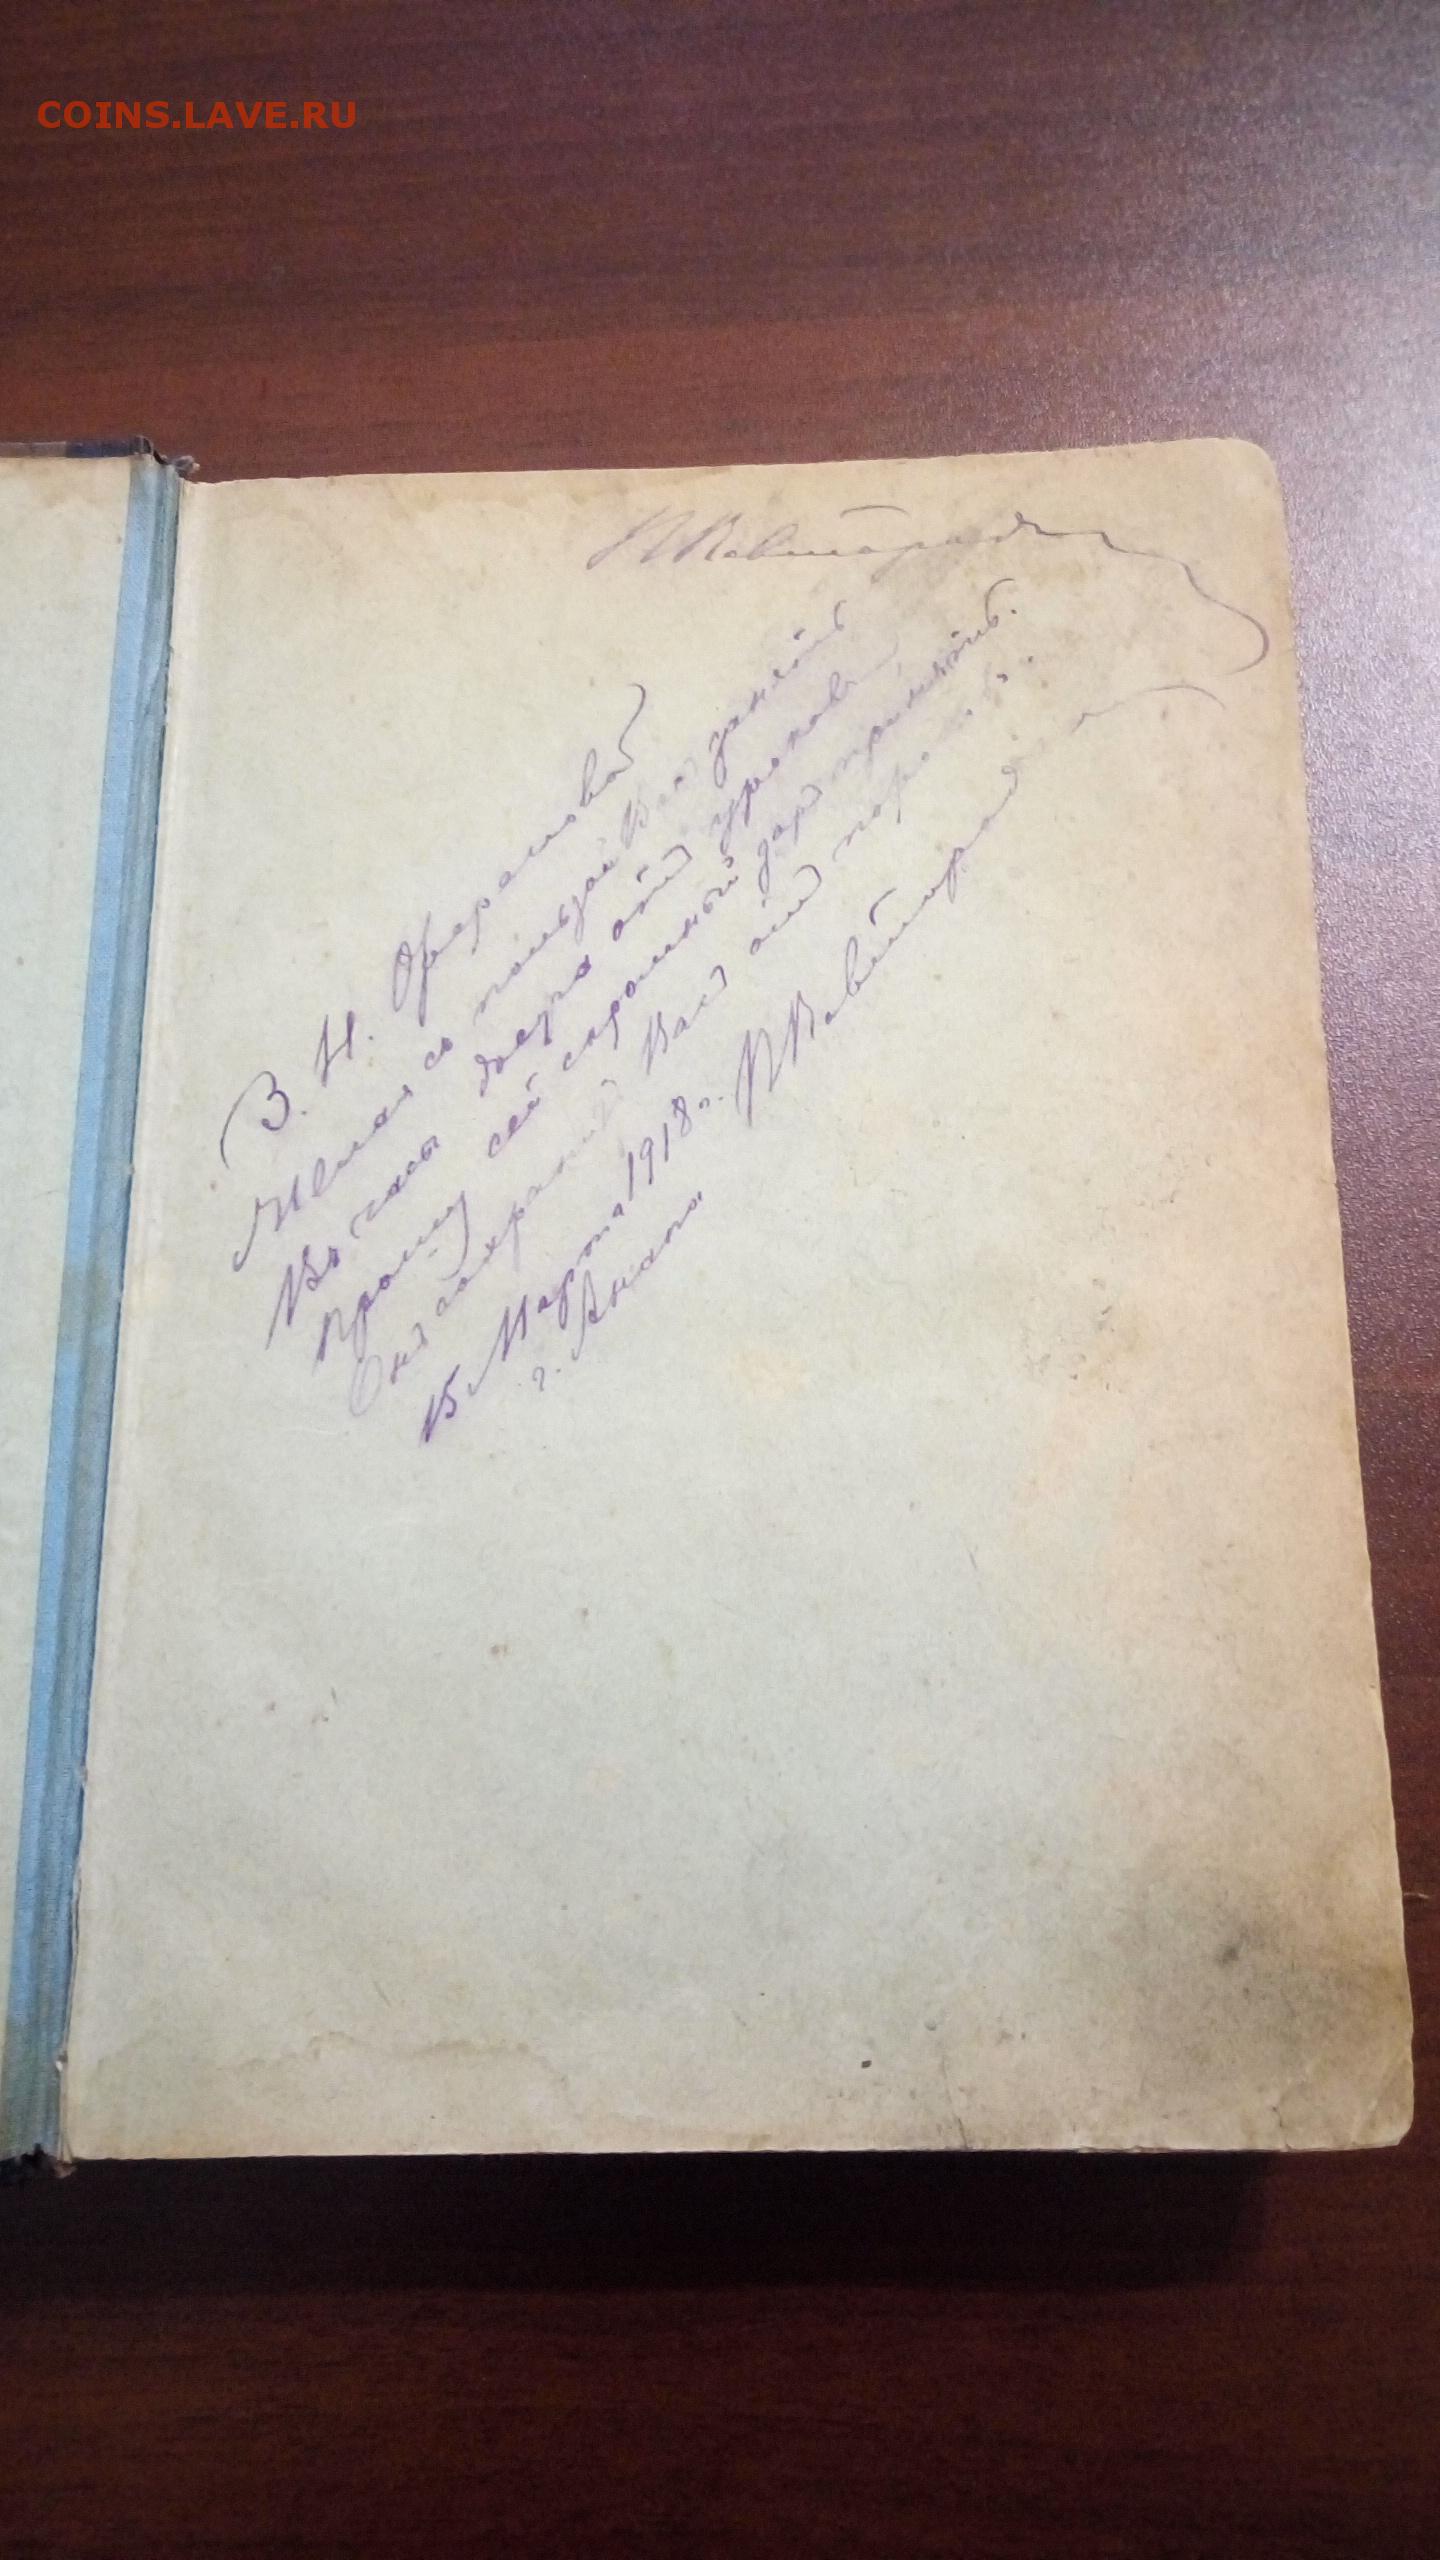 COINS.LAVE.RU
З. Н. Оферановой
Желая съ пользой Васъ занять
Въ часы досуга отъ уроковъ
Прошу сей скромный даръ принять.
Онъ сохранитъ Васъ отъ
15 Марта 1918 г.
г. Анапа